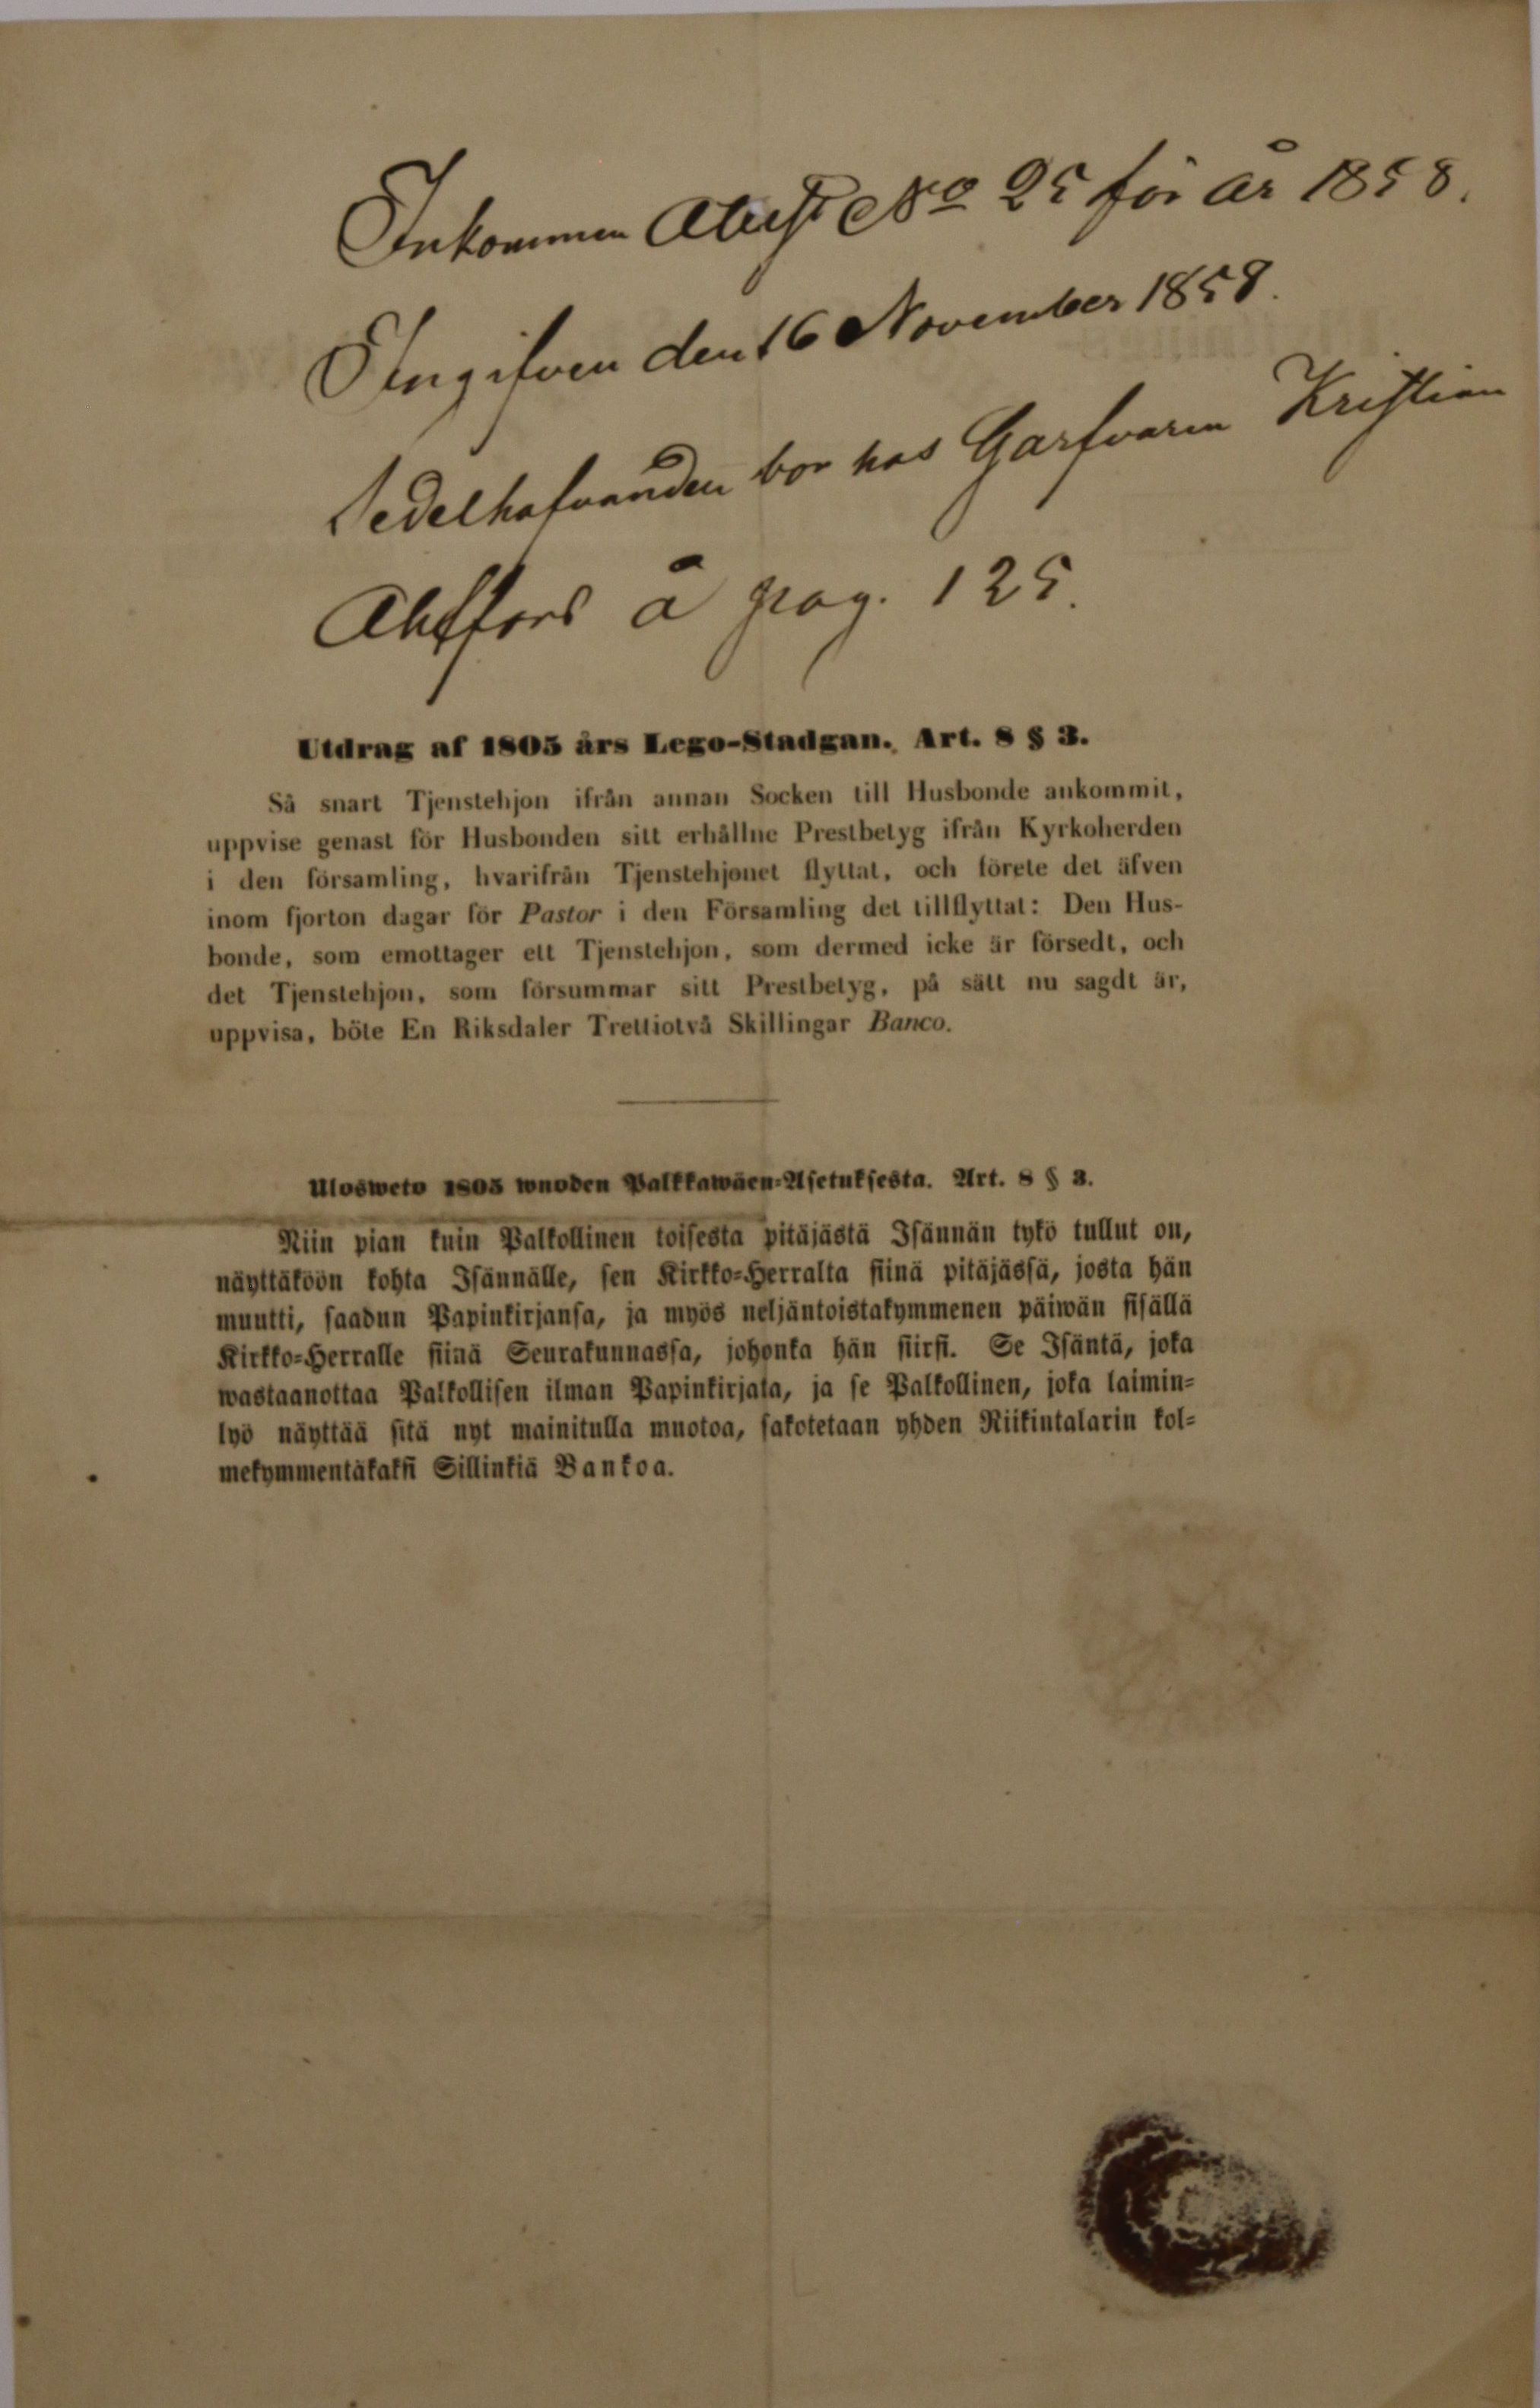 Inkommen Attest No 25 för år 1858.
Ingifven den 16 November 1858.
Sedelhafvanden bor hos Garfvaren Kristian
Ahlfors å pag. 125.
Utdrag af 1805 års Lego-Stadgan. Art. 8 § 3.
Så snart Tjenstehjon ifrån annan Socken till Husbonde ankommit,
uppvise genast för Husbonden sitt erhållne Prestbetyg ifrån Kyrkoherden
i den församling, hvarifrån Tjenstehjonet flyttat, och förete det äfven
inom fjorton dagar för Pastor i den Församling det tillflyttat: Den Hus-
bonde, som emottager ett Tjenstehjon, som dermed icke är försedt, och
det Tjenstehjon, som försummar sitt Prestbetyg, på sätt nu sagdt är,
uppvisa, böte En Riksdaler Trettiotvå Skillingar Banco.
Ulosweto 1805 wuoden Palkkawäen-Asetuksesta. Art. 8 § 3.
Niin pian kuin Palkollinen toisesta pitäjästä Isännän tykö tullut on,
näyttäköön kohta Isännälle, sen Kirkko-Herralta siinä pitäjässä, josta hän
muutti, saadun Papinkirjansa, ja myös neljäntoistakymmenen päiwän sisällä
Kirkko-Herralle siinä Seurakunnassa, johonka hän siirsi. Se Isäntä, joka
wastaanottaa Palkollisen ilman Papinkirjata, ja se Palkollinen, joka laimin-
lyö näyttää sitä nyt mainitulla muotoa, sakotetaan yhden Riikintalarin kol-
mekymmentäkaksi Sillinkiä Bankoa.